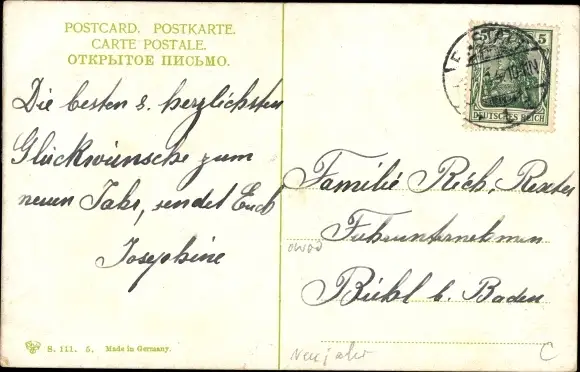 POSTCARD. POSTKARTE.
CARTE POSTALE.
ОТКРЫТОЕ ПИСЬМО.
Die besten & herzlichsten
Glückwünsche zum
neuen Jahr, sendet Euch
Josephine
5
DEUTSCHES REICH
Familie Rich. Rexter
Fuhrunternehmen
Bühl b. Baden
S. 111. 5. Made in Germany.
Neujahr
C